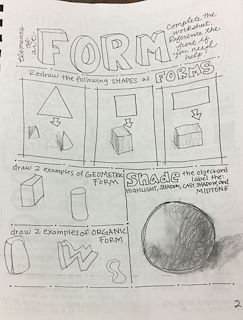 elements of art
FORM
Complete the
worksheet.
Reference the
front if
you need
help!
Redraw the following SHAPES as FORMS
draw 2 examples of GEOMETRIC
FORM
Shade the object and
label the:
HIGHLIGHT, SHADOW, CAST SHADOW, and
MIDTONE
draw 2 examples of ORGANIC
FORM
2